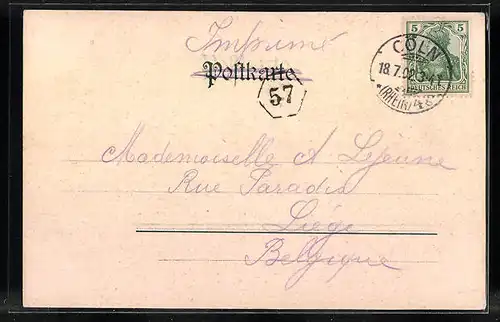 Imprimé
Postkarte
57
5 5
DEUTSCHES REICH
CÖLN
18.7.02.3-4T
*(RHEIN)
Mademoiselle A Lejeune
Rue Paradis
Liége
Belgique